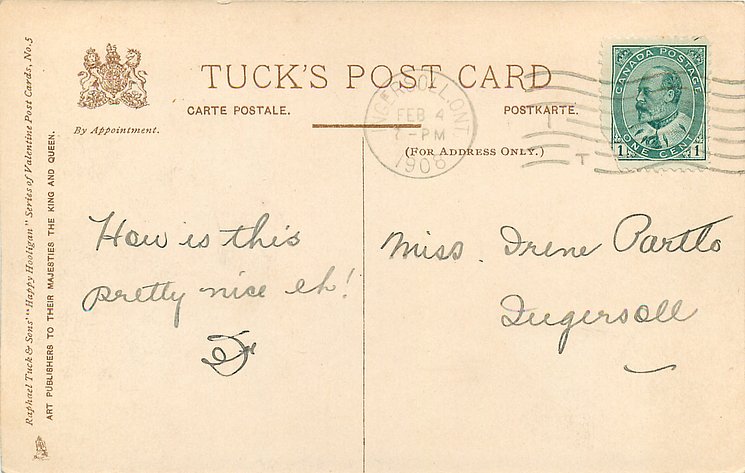 TUCK'S POST CARD
CARTE POSTALE.
POSTKARTE.
By Appointment.
(FOR ADDRESS ONLY.)
Raphael Tuck & Sons' "Happy Hooligan" Series of Valentine Post Cards, No. 5
ART PUBLISHERS TO THEIR MAJESTIES THE KING AND QUEEN.
INGERSOLL, ONT.
FEB 4
PM
1908
T
CANADA POSTAGE
1 ONE CENT 1
How is this
pretty nice eh!
Miss. Irene Partlo
Ingersoll